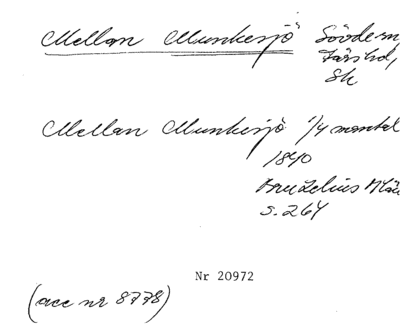 Mellan Munkesjö Sövdern,
Färs hd,
Sk
Mellan Munkesjö 1/4 mantal
1840
Bruzelius
s. 264
Nr 20972
(acc nr 8778)